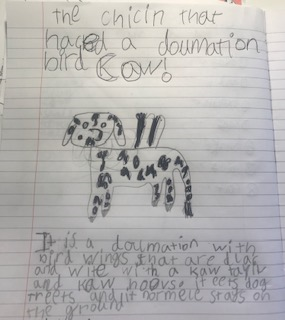 the chicin that
haced a doumation
bird Kow!
It is a doumation with
bird wings that are blak
and wite with a kaw tayl
and kaw hoovs. it eets dog
treets and it normele stays on
the ground